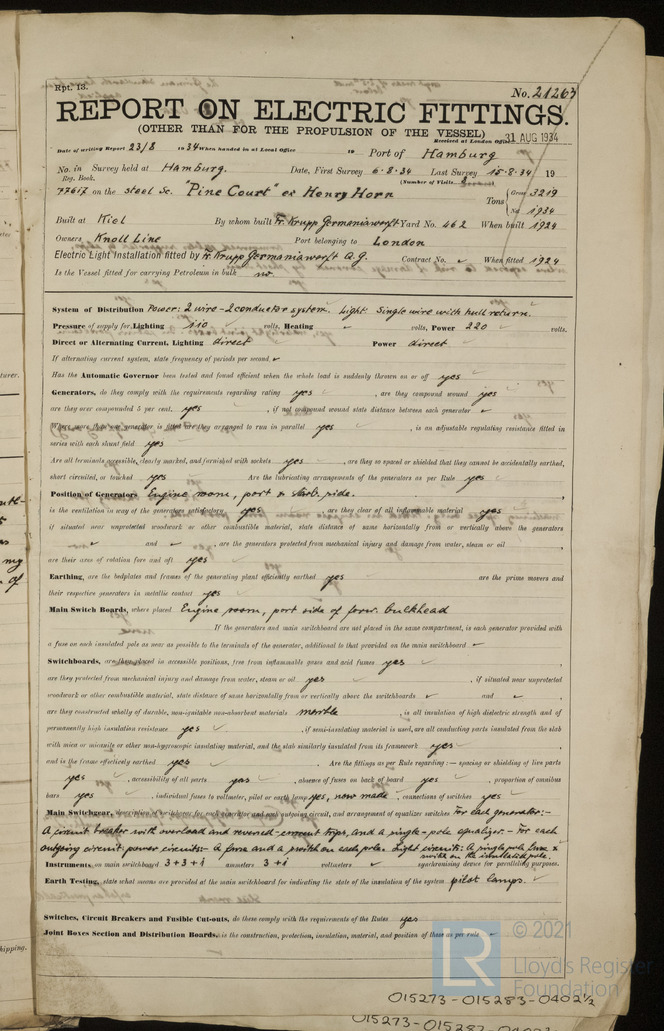 Rpt. 13.
No. 21263
REPORT ON ELECTRIC FITTINGS.
(OTHER THAN FOR THE PROPULSION OF THE VESSEL)
Received at London Office 31 AUG 1934
Date of writing Report 23/8 1934 When handed in at Local Office 19 Port of Hamburg
No. in Survey held at Hamburg. Date, First Survey 6-8-34 Last Survey 15-8-34 19
Reg. Book. (Number of Visits
77617 on the steel Sc. "Pine Court" ex Henry Horn Tons { Gross 3219
Net 1934
Built at Kiel By whom built Fr. Krupp Germaniawerft Yard No. 462 When built 1924
Owners Knoll Line Port belonging to London
Electric Light Installation fitted by Fr. Krupp Germaniawerft A.G. Contract No. When fitted 1924
Is the Vessel fitted for carrying Petroleum in bulk no.
System of Distribution Power: 2 wire - 2 conductor system. Light: Single wire with hull return.
Pressure of supply for Lighting 110 volts, Heating volts, Power 220 volts.
Direct or Alternating Current, Lighting direct Power direct
If alternating current system, state frequency of periods per second
Has the Automatic Governor been tested and found efficient when the whole load is suddenly thrown on or off yes
Generators, do they comply with the requirements regarding rating yes, are they compound wound yes
are they over compounded 5 per cent. yes, if not compound wound state distance between each generator
Where more than one generator is fitted are they arranged to run in parallel yes, is an adjustable regulating resistance fitted in
series with each shunt field yes
Are all terminals accessible, clearly marked, and furnished with sockets yes, are they so spaced or shielded that they cannot be accidentally earthed,
short circuited, or touched yes Are the lubricating arrangements of the generators as per Rule yes
Position of Generators Engine room, port & starb. side.
is the ventilation in way of the generators satisfactory yes, are they clear of all inflammable material yes
if situated near unprotected woodwork or other combustible material, state distance of same horizontally from or vertically above the generators
and , are the generators protected from mechanical injury and damage from water, steam or oil
are their axes of rotation fore and aft yes
Earthing, are the bedplates and frames of the generating plant efficiently earthed yes are the prime movers and
their respective generators in metallic contact yes
Main Switch Boards, where placed Engine room, port side of forw. bulkhead
If the generators and main switchboard are not placed in the same compartment, is each generator provided with
a fuse on each insulated pole as near as possible to the terminals of the generator, additional to that provided on the main switchboard
Switchboards, are they placed in accessible positions, free from inflammable gases and acid fumes yes
are they protected from mechanical injury and damage from water, steam or oil yes, if situated near unprotected
woodwork or other combustible material, state distance of same horizontally from or vertically above the switchboards and
are they constructed wholly of durable, non-ignitable non-absorbent materials marble, is all insulation of high dielectric strength and of
permanently high insulation resistance yes, if semi-insulating material is used, are all conducting parts insulated from the slab
with mica or micanite or other non-hygroscopic insulating material, and the slab similarly insulated from its framework yes
and is the frame effectively earthed yes Are the fittings as per Rule regarding:— spacing or shielding of live parts
yes, accessibility of all parts yes, absence of fuses on back of board yes, proportion of omnibus
bars yes, individual fuses to voltmeter, pilot or earth lamp yes, now made, connections of switches yes
Main Switchgear, description of switchgear for each generator and each outgoing circuit, and arrangement of equalizer switches For each generator:-
A circuit breaker with overload and reversed-current trips, and a single-pole equalizer.- For each
outgoing circuit: power circuits:- A fuse and a switch on each pole. Light circuits: A single pole fuse &
switch on the insulated pole.
Instruments, on main switchboard 3+3+1 ammeters 3+1 voltmeters synchronising device for paralleling purposes.
Earth Testing, state what means are provided at the main switchboard for indicating the state of the insulation of the system pilot lamps.
Switches, Circuit Breakers and Fusible Cut-outs, do these comply with the requirements of the Rules yes
Joint Boxes Section and Distribution Boards, is the construction, protection, insulation, material, and position of these as per rule
LR © 2021
Lloyd's Register
Foundation
015273-015283-0402½